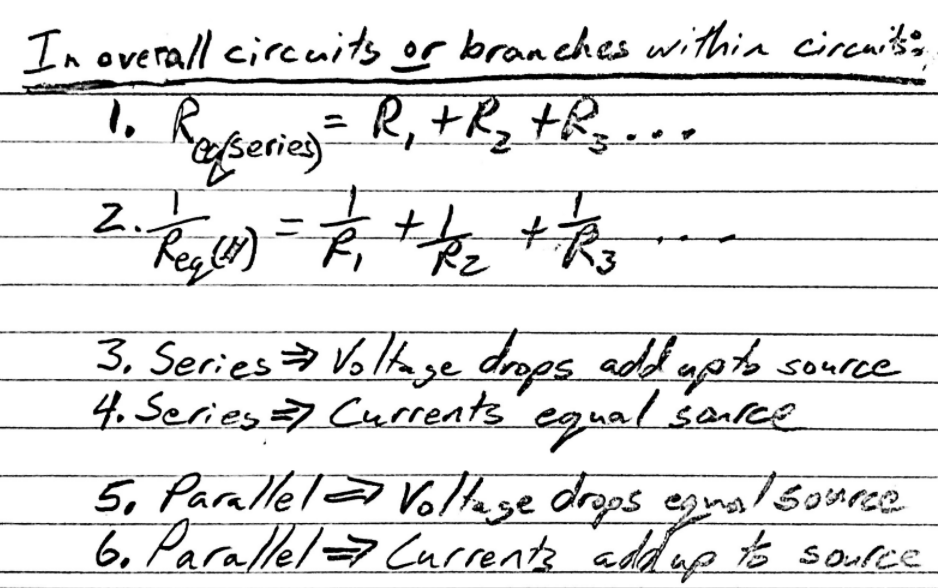 In overall circuits or branches within circuits:
1. Req(series) = R₁ + R₂ + R₃ ...
2. 1/Req(//) = 1/R₁ + 1/R₂ + 1/R₃ ...
3. Series ⇒ Voltage drops add up to source
4. Series ⇒ Currents equal source
5. Parallel ⇒ Voltage drops equal source
6. Parallel ⇒ Currents add up to source